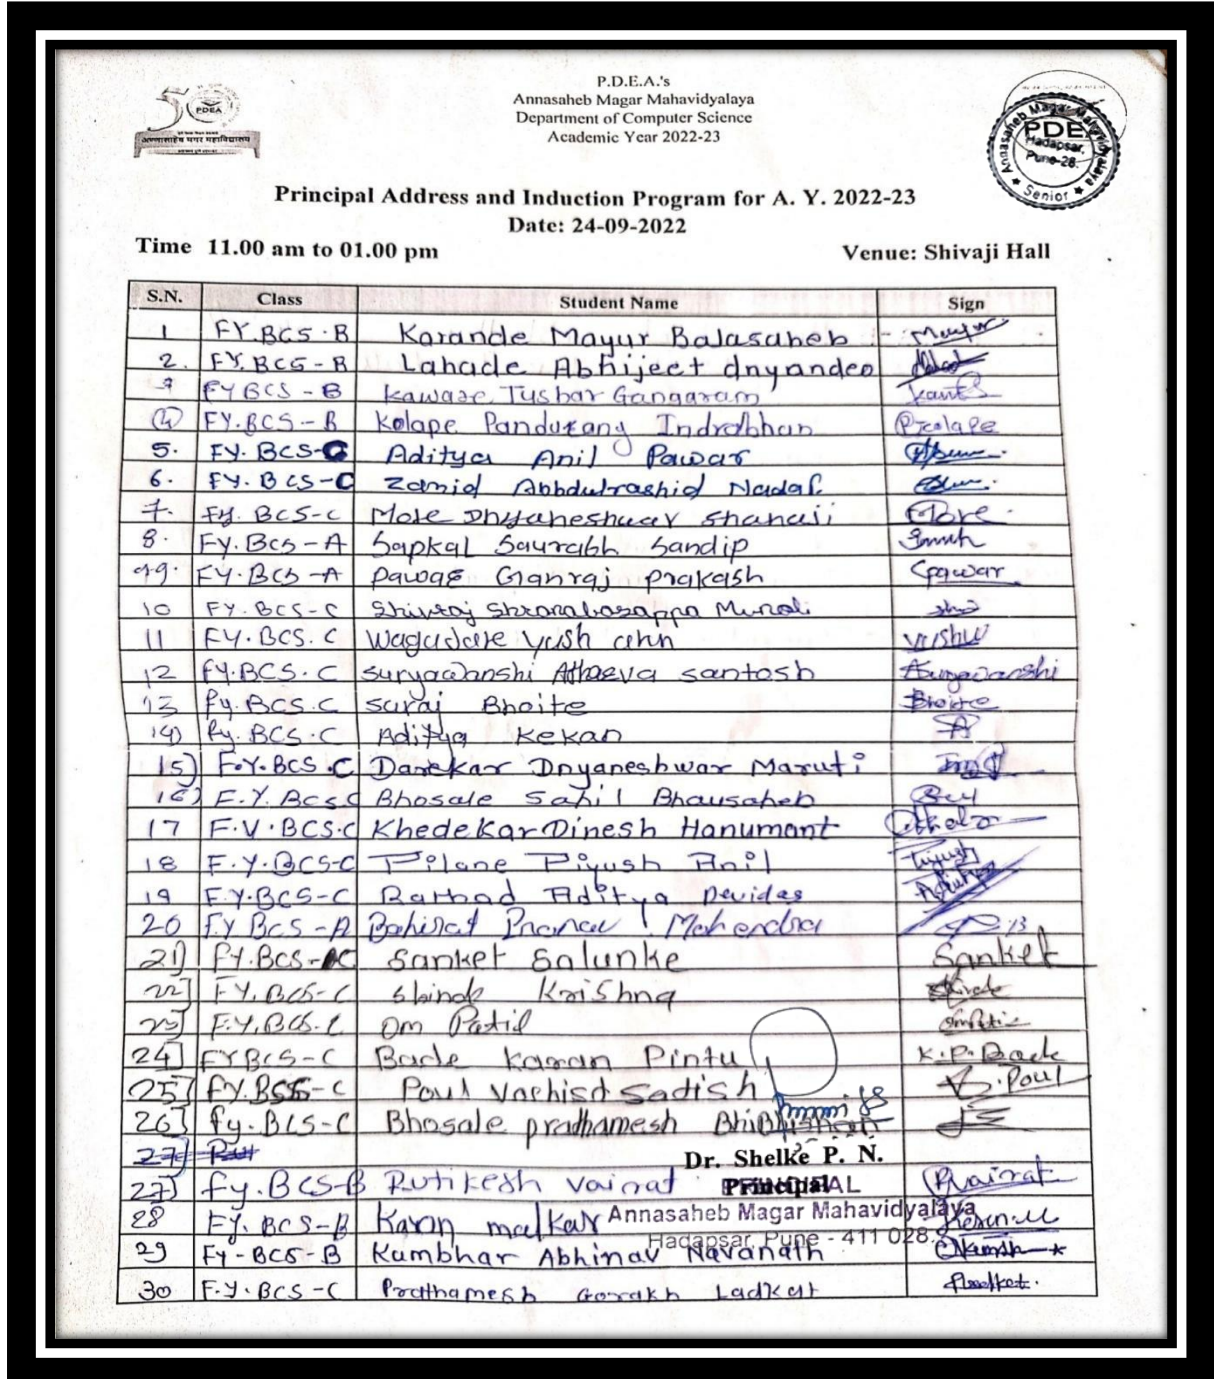 P.D.E.A.'s
Annasaheb Magar Mahavidyalaya
Department of Computer Science
Academic Year 2022-23
PDEA
अण्णासाहेब मगर महाविद्यालय
Annasaheb Magar Mahavidyalaya
PDEA
Hadapsar,
Pune-28.
Senior
Principal Address and Induction Program for A. Y. 2022-23
Date: 24-09-2022
Time 11.00 am to 01.00 pm Venue: Shivaji Hall
S.N. Class Student Name Sign
1 FY.BCS-B Karande Mayur Balasaheb
2. FY.BCS-B Lahade Abhijeet dnyandeo
FYBCS-B Kawase Tushar Gangaram
4 FY.BCS-B Kolape Pandurang Indrabhan Pkolape
5. FY. BCS-C Aditya Anil Pawar
6. FY. BCS-C Zamid Abbdulrashid Nadaf.
7. Fy. BCS-C More Dnyaneshwar Shahaji More
8. FY.BCS-A Sapkal Saurabh Sandip
9. FY.BCS-A Pawar Ganraj Prakash Gpawar
10 FY.BCS-C Shivraj Munoli
11 FY.BCS.C
12 FY.BCS.C Suryawanshi Atharva santosh Asuryawanshi
13 Fy.BCS.C Suraj Bhoite Bhoite
14) Fy.BCS.C Aditya Kekan
15) F.Y.BCS.C Darekar Dnyaneshwar Maruti
16) F.Y.BCS C Bhosale Sahil Bhausaheb
17 F.Y.BCS.C Khedekar Dinesh Hanumant
18 F.Y.BCS-C Pilane Piyush Anil Piyush
19 F.Y.BCS-C Rathod Aditya Devidas Aditya
20 F.Y BCS-A Bahirat Pranav Mahendra
21] FY.BCS-C Sanket Salunke Sanket
22] FY.BCS-C Shinde Krishna
23] F.Y.BCS-C Om Patil
24] FYBCS-C Bade Karan Pintu K.P.Bade
25] FY.BCS-C Paul Vashist Sadish V.Poul
26] Fy.BCS-C Bhosale prathamesh
27]
Dr. Shelke P. N.
27] Fy.BCS-B Rutikesh Vairat Rvairat
Principal
PRINCIPAL
28 FY. BCS-B Karan malkar
Annasaheb Magar Mahavidyalaya
Hadapsar, Pune - 411 028.
29 FY-BCS-B Kumbhar Abhinav Navanath
30 F.Y.BCS-C Prathamesh Gorakh Ladkat